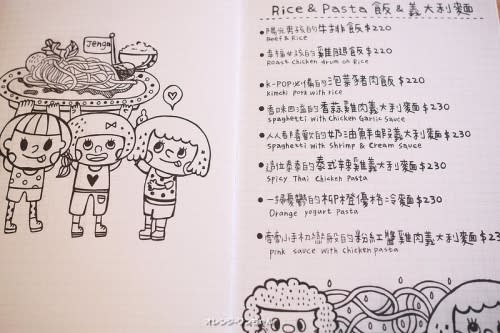 Jenga
Rice & Pasta 飯 & 義大利麵
陽光男孩的牛排飯$220
Beef & Rice
幸福女孩的雞腿飯$220
Roast chicken drum on Rice
K-POP必備的泡菜豬肉飯$220
kimchi pork with rice
香味四溢的香蒜雞肉義大利麵$230
spaghetti with Chicken Garlic Sauce
人人都喜歡的奶油鮮蝦義大利麵$230
spaghetti with Shrimp & Cream Sauce
這位泰泰的泰式辣雞義大利麵$230
Spicy Thai Chicken Pasta
一掃憂鬱的柳橙優格冷麵$230
Orange yogurt Pasta
牽牽小手初戀般的粉紅醬雞肉義大利麵$23
pink sauce with chicken pasta